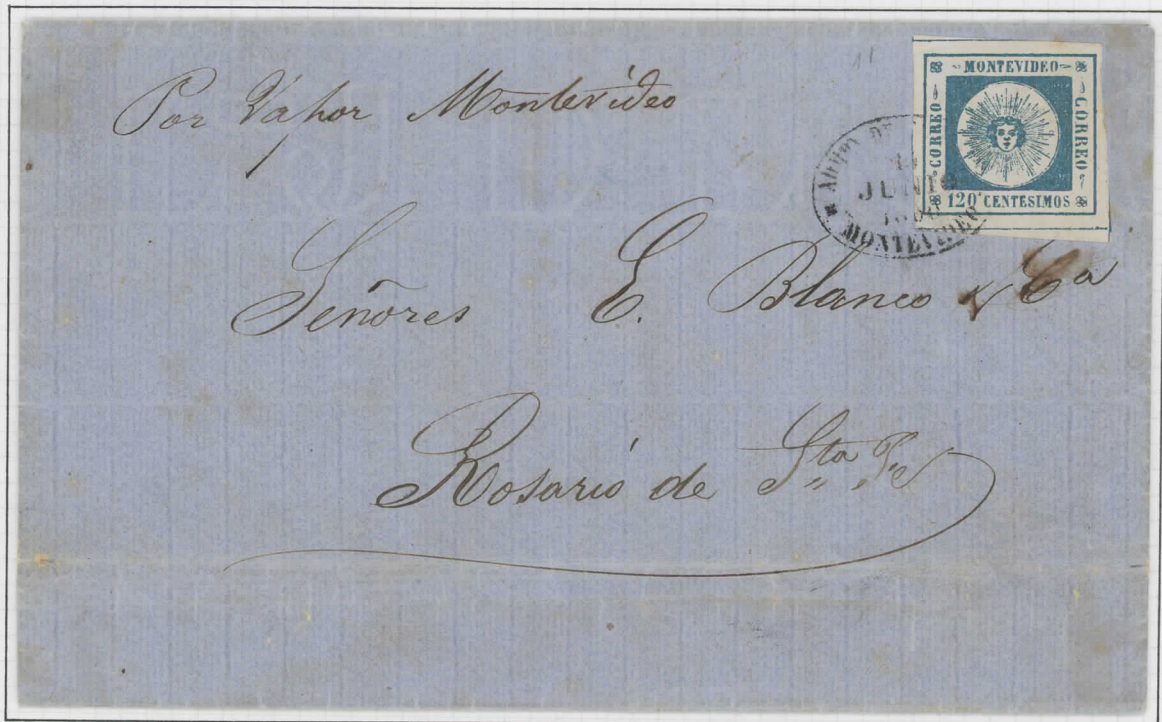 Por Vapor Montevideo
MONTEVIDEO
CORREO
CORREO
120 CENTESIMOS
DE
JUNIO
MONTEVIDEO
Señores E. Blanco y Ca
Rosario de Sta Fe